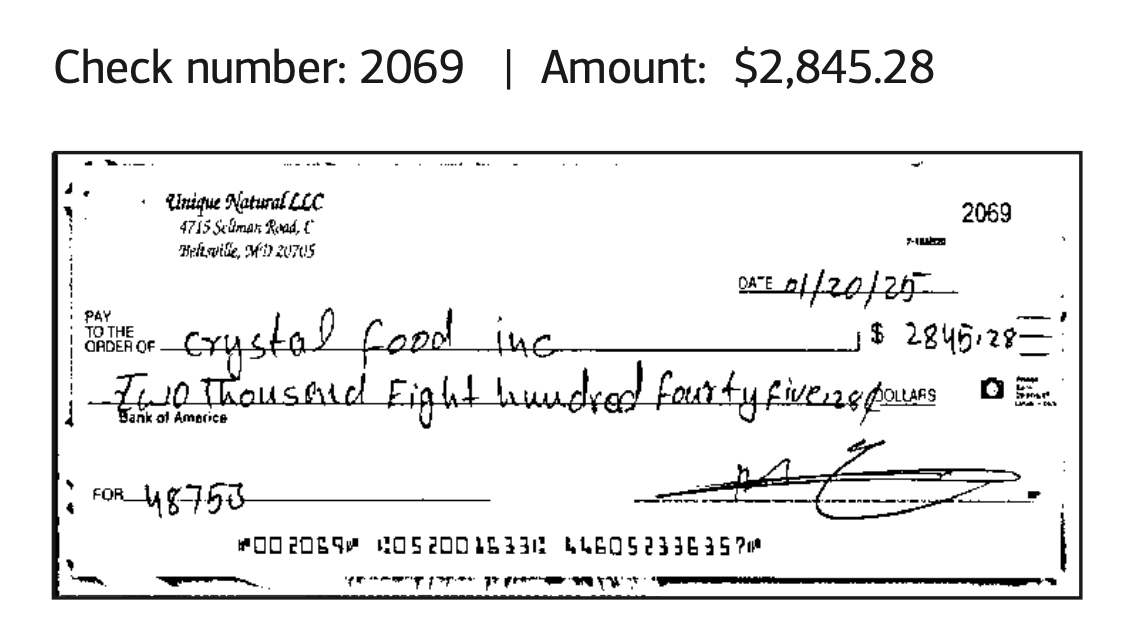 Check number: 2069 | Amount: $2,845.28
Unique Natural LLC
4715 Sellman Road, C
Beltsville, MD 20705
2069
DATE 01/20/25
PAY
TO THE
ORDER OF crystal food inc $ 2845.28
Two Thousand Eight hundred fourty five.28¢ DOLLARS
Bank of America
FOR 48753
⑈002069⑈ ⑆052001633⑆ 446052336357⑈